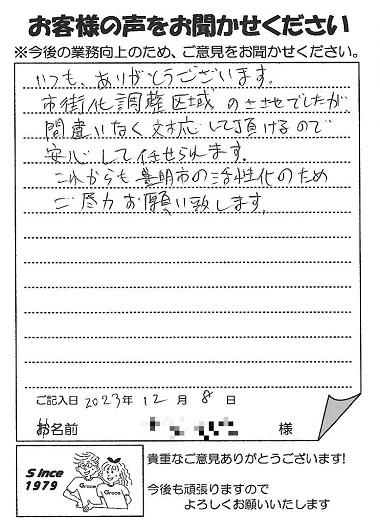 お客様の声をお聞かせください
※今後の業務向上のため、ご意見をお聞かせください。
いつも、ありがとうございます。
市街化調整区域のさせでしたが
間違いなく対応して頂けるので
安心して任せられます。
これからも豊明市の活性化のため
ご尽力お願い致します。
ご記入日 2023年 12月 8日
お名前 様
Since
1979
Grace
Grace
貴重なご意見ありがとうございます!
今後も頑張りますので
よろしくお願いいたします